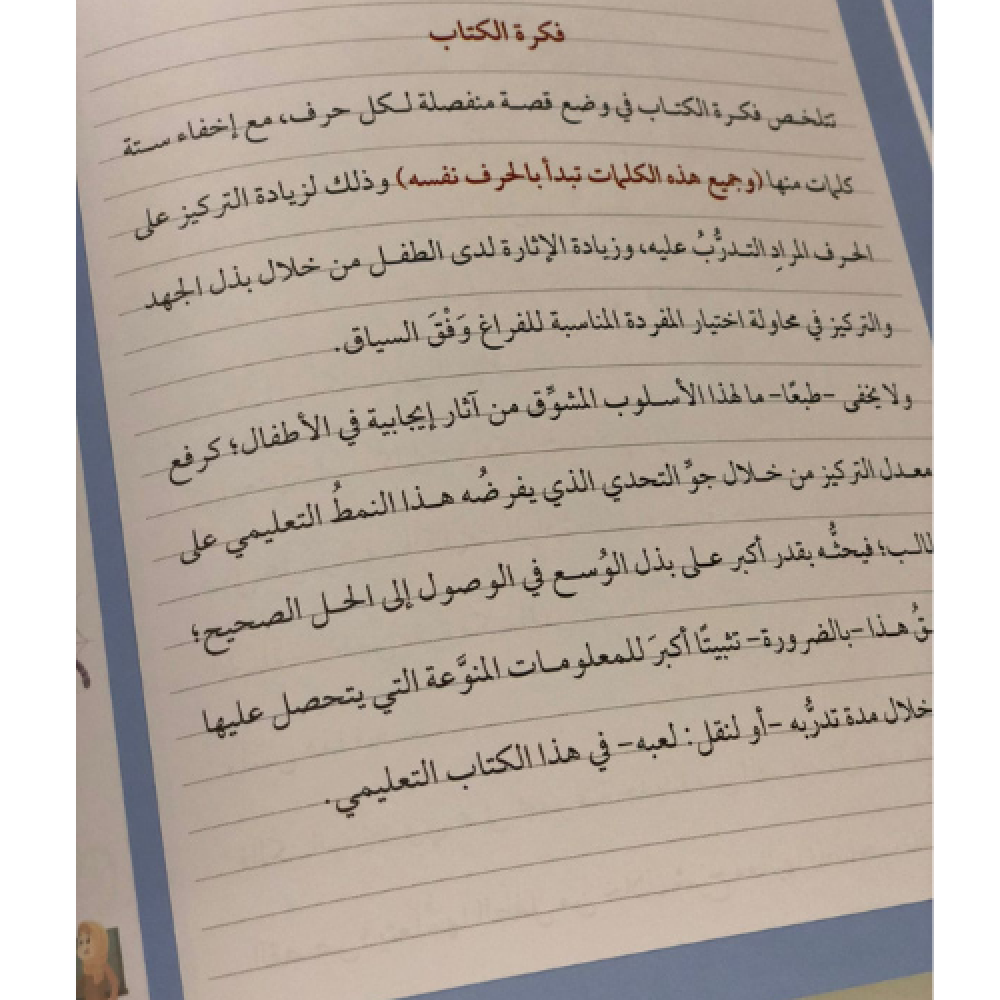 فكرة الكتاب
تتلخص فكرة الكتاب في وضع قصة منفصلة لكل حرف، مع إخفاء ستة
كلمات منها (وجميع هذه الكلمات تبدأ بالحرف نفسه) وذلك لزيادة التركيز على
الحرف المرادِ التدرُّبُ عليه، وزيادة الإثارة لدى الطفل من خلال بذل الجهد
والتركيز في محاولة اختيار المفردة المناسبة للفراغ وَفْقَ السياق.
ولا يخفى -طبعًا- ما لهذا الأسلوب المشوِّق من آثار إيجابية في الأطفال؛ كرفع
معدل التركيز من خلال جوِّ التحدي الذي يفرضُه هذا النمطُ التعليمي على
فيحثُّه بقدر أكبر على بذل الوُسع في الوصول إلى الحل الصحيح؛
هذا -بالضرورة- تثبيتًا أكبرَ للمعلومات المنوَّعة التي يتحصل عليها
خلال مدة تدرُّبه -أو لنقل: لعبه- في هذا الكتاب التعليمي.